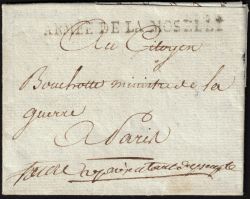 ARMÉE DE LA MOSELLE
Au Citoyen
Bouchotte ministre de la
guerre
à Paris